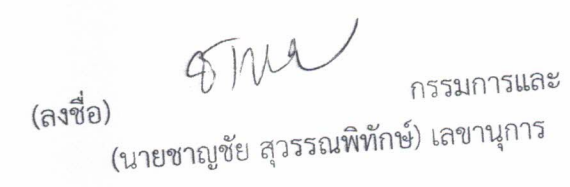 (ลงชื่อ) กรรมการและ
(นายชาญชัย สุวรรณพิทักษ์) เลขานุการ